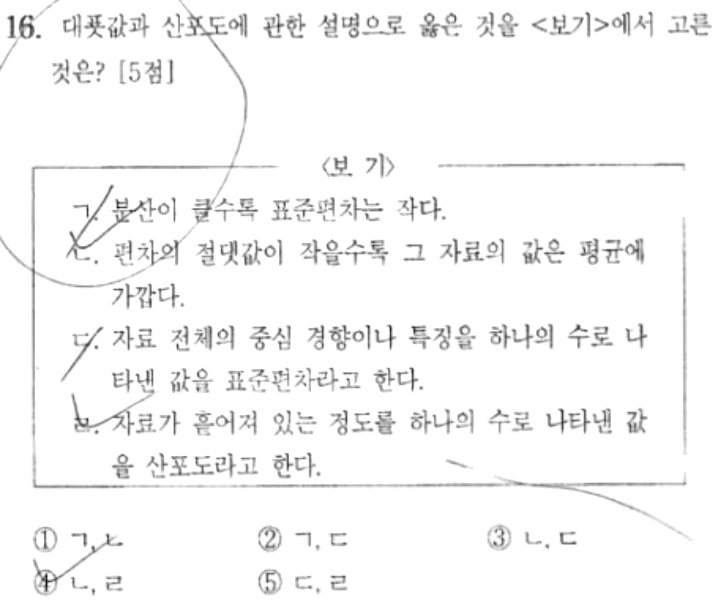 16. 대푯값과 산포도에 관한 설명으로 옳은 것을 <보기>에서 고른
것은? [5점]
<보 기>
ㄱ. 분산이 클수록 표준편차는 작다.
ㄴ. 편차의 절댓값이 작을수록 그 자료의 값은 평균에
가깝다.
ㄷ. 자료 전체의 중심 경향이나 특징을 하나의 수로 나
타낸 값을 표준편차라고 한다.
ㄹ. 자료가 흩어져 있는 정도를 하나의 수로 나타낸 값
을 산포도라고 한다.
① ㄱ, ㄴ ② ㄱ, ㄷ ③ ㄴ, ㄷ
④ ㄴ, ㄹ ⑤ ㄷ, ㄹ